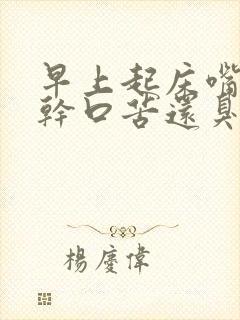 早上起床嘴
幹口苦還臭
楊慶偉